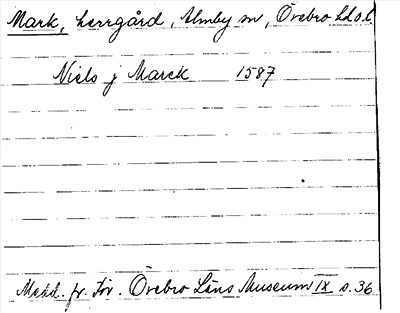 Mark, herrgård, Almby sn, Örebro hd o. l.
Niels j Marck 1587
Medd. fr. För. Örebro Läns Museum IX s. 36